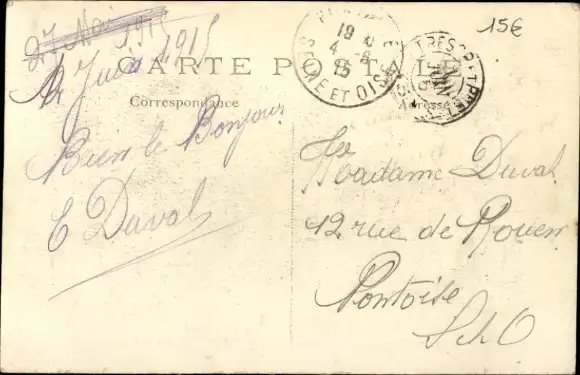 27 Mai 1915
2 Juin 1915
15€
CARTE POSTALE
Correspondance
Adresse
19
4 - 6
15
SEINE ET OISE
TRESOR ET POSTES
JUIN
Bien le Bonjour
E Duval
Madame Duval
12 rue de Rouen
Pontoise
S et O